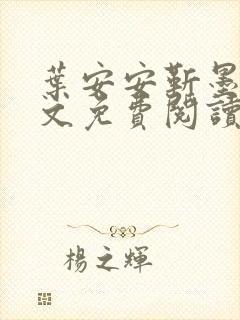 葉安安靳墨
文免費閱讀
楊之輝